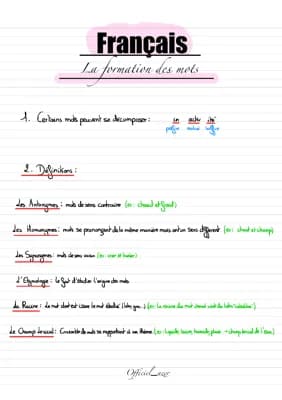 Français
La formation des mots
1. Certains mots peuvent se décomposer : in activ ité
préfixe radical suffixe
2. Définitions :
Les Antonymes : mots de sens contraire (ex : chaud et froid)
Les Homonymes : mots se prononçant de la même manière mais ont un sens différent (ex : chant et champ)
Les Synonymes : mots de sens
L'Etymologie : le fait d'étudier l'origine des mots
La Racine : Le mot dont est issue le mot étudié (ex : la racine du mot
Le Champ lexical : Ensemble de mots se rapportant à un thème (ex : → champ lexical de l'eau)
Officiel_azer